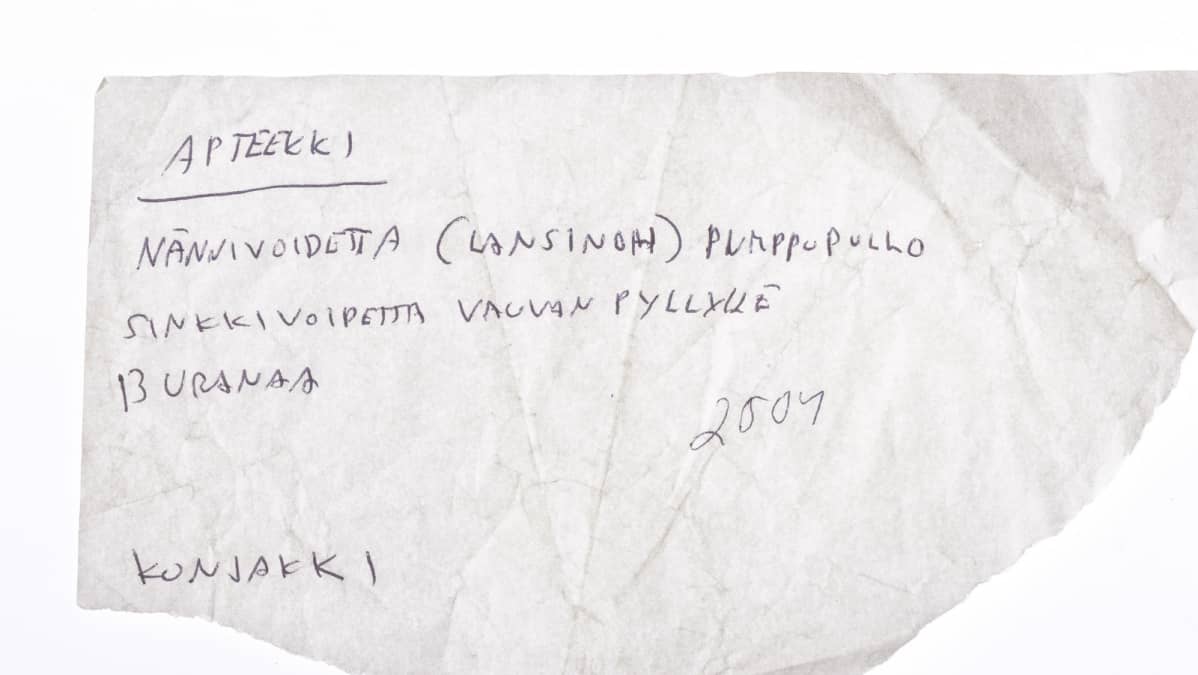 APTEEKKI
NÄNNIVOIDETTA (LANSINOH) PUMPPUPULLO
SINKKIVOIDETTA VAUVAN PYLLYLLE
BURANAA
2004
KONJAKKI